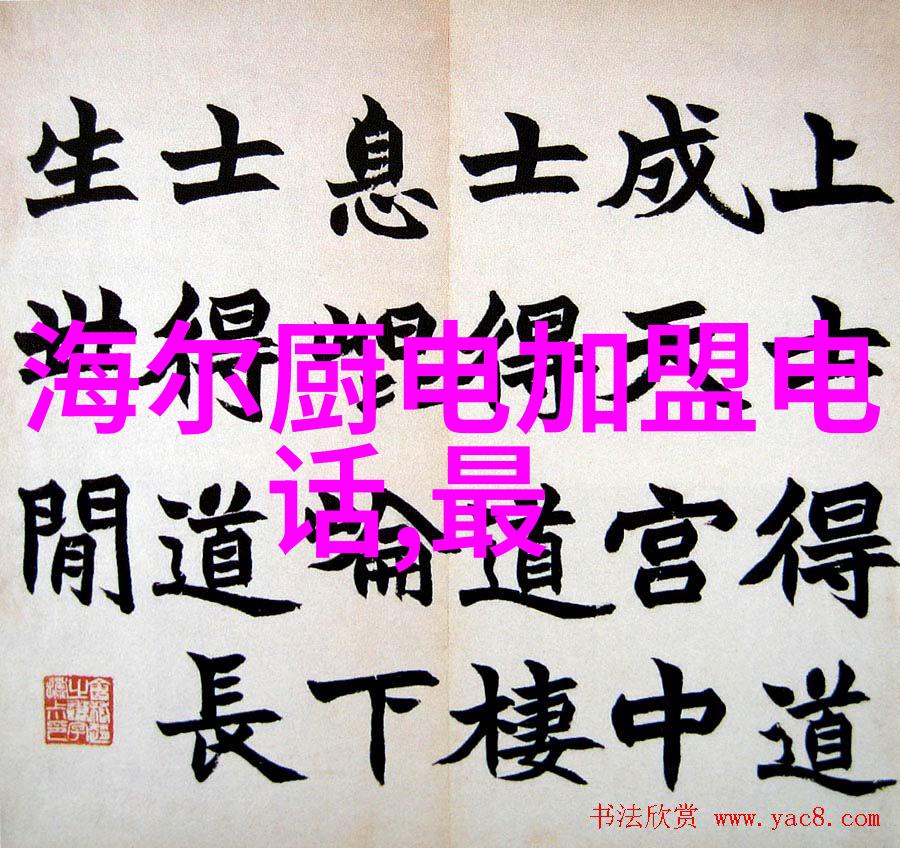 上士得道
成天宮中
士得道棲
息下
士得道長
生世閒
海尔厨电加盟电
话,最
书法欣赏 www.yac8.com